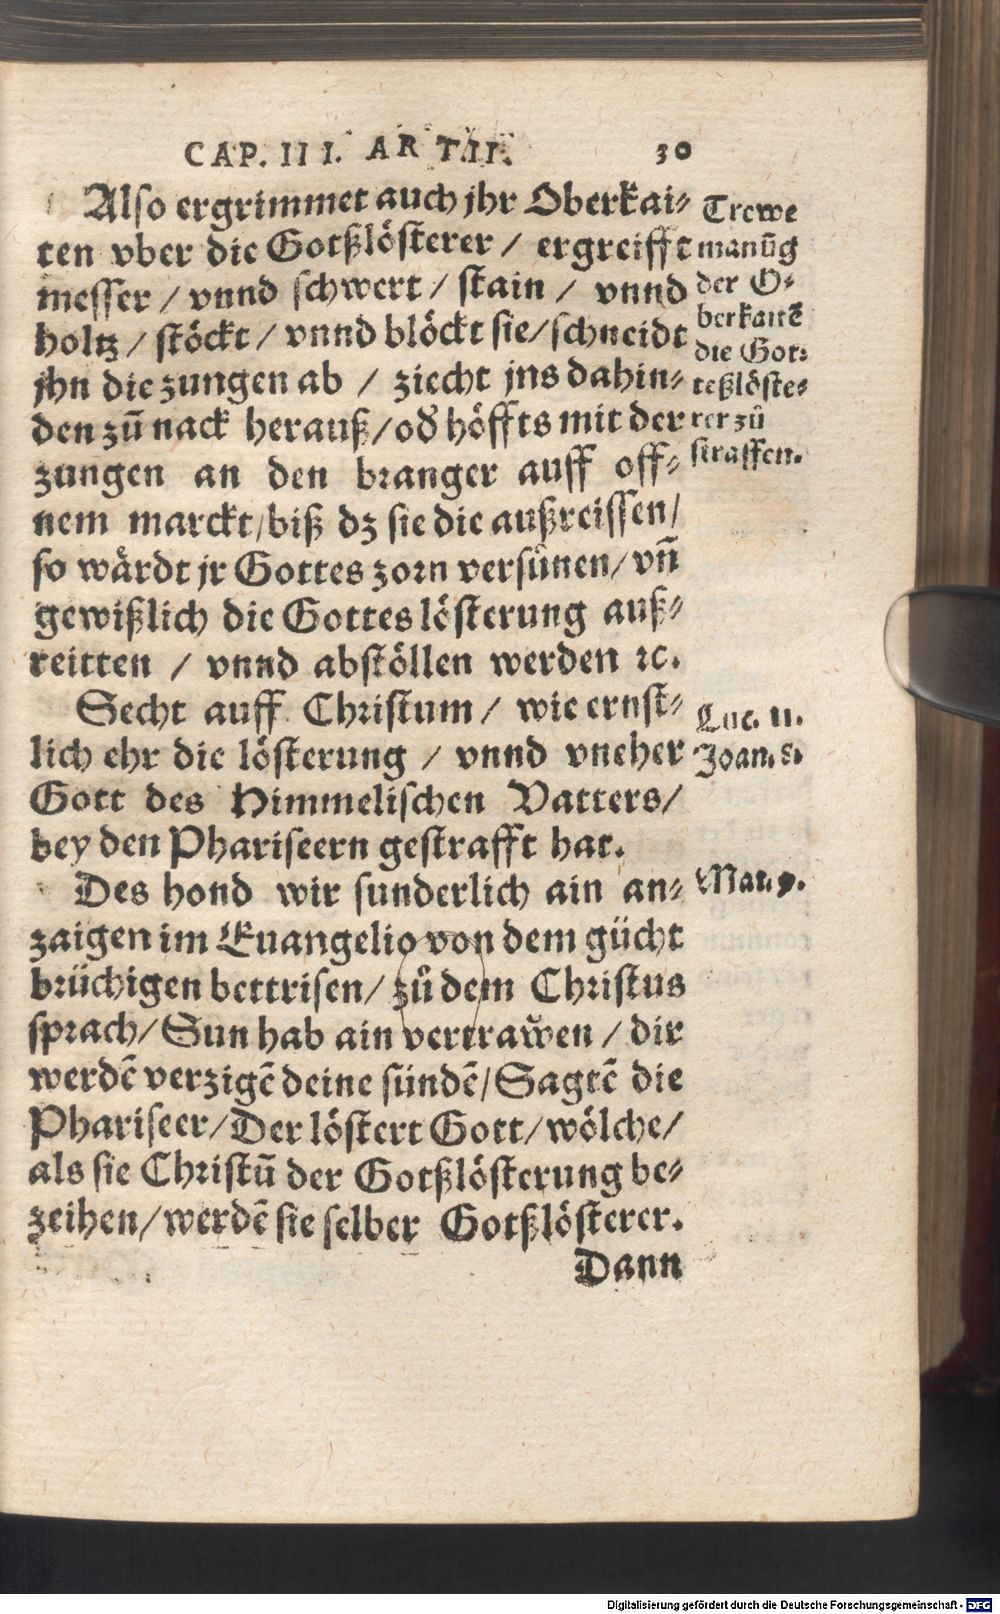 CAP. III. ART. II. 30
Also ergrimmet auch jhr Oberkai⸗
ten vber die Gotßlösterer / ergreifft
messer / vnnd schwert / stain / vnnd
holtz / stöckt / vnnd blöckt sie / schneidt
jhn die zungen ab / ziecht jns dahin⸗
den zů nack herauß / oď höffts mit der
zungen an den branger auff off⸗
nem marckt / biß dz sie die außreissen /
so wärdt jr Gottes zorn versůnen / vñ
gewißlich die Gottes lösterung auß⸗
reitten / vnnd abstöllen werden ꝛc.
Secht auff Christum / wie ernst⸗
lich ehr die lösterung / vnnd vneher
Gott des Himmelischen Vatters /
bey den Phariseern gestrafft hat.
Des hond wir sunderlich ain an⸗
zaigen im Euangelio von dem gücht
brüchigen bettrisen / zů dem Christus
sprach / Sun hab ain vertrawen / dir
werdē verzigē deine sündē / Sagtē die
Phariseer / Der löstert Gott / wölche /
als sie Christū der Gotßlösterung be⸗
zeihen / werdē sie selber Gotßlösterer.
Dann
Trewe
manūg
der O⸗
berkaitē
die Got⸗
teßlöste⸗
rer zů
straffen.
Luc. 11.
Joan. 8.
Mat. 9.
Digitalisierung gefördert durch die Deutsche Forschungsgemeinschaft - DFG